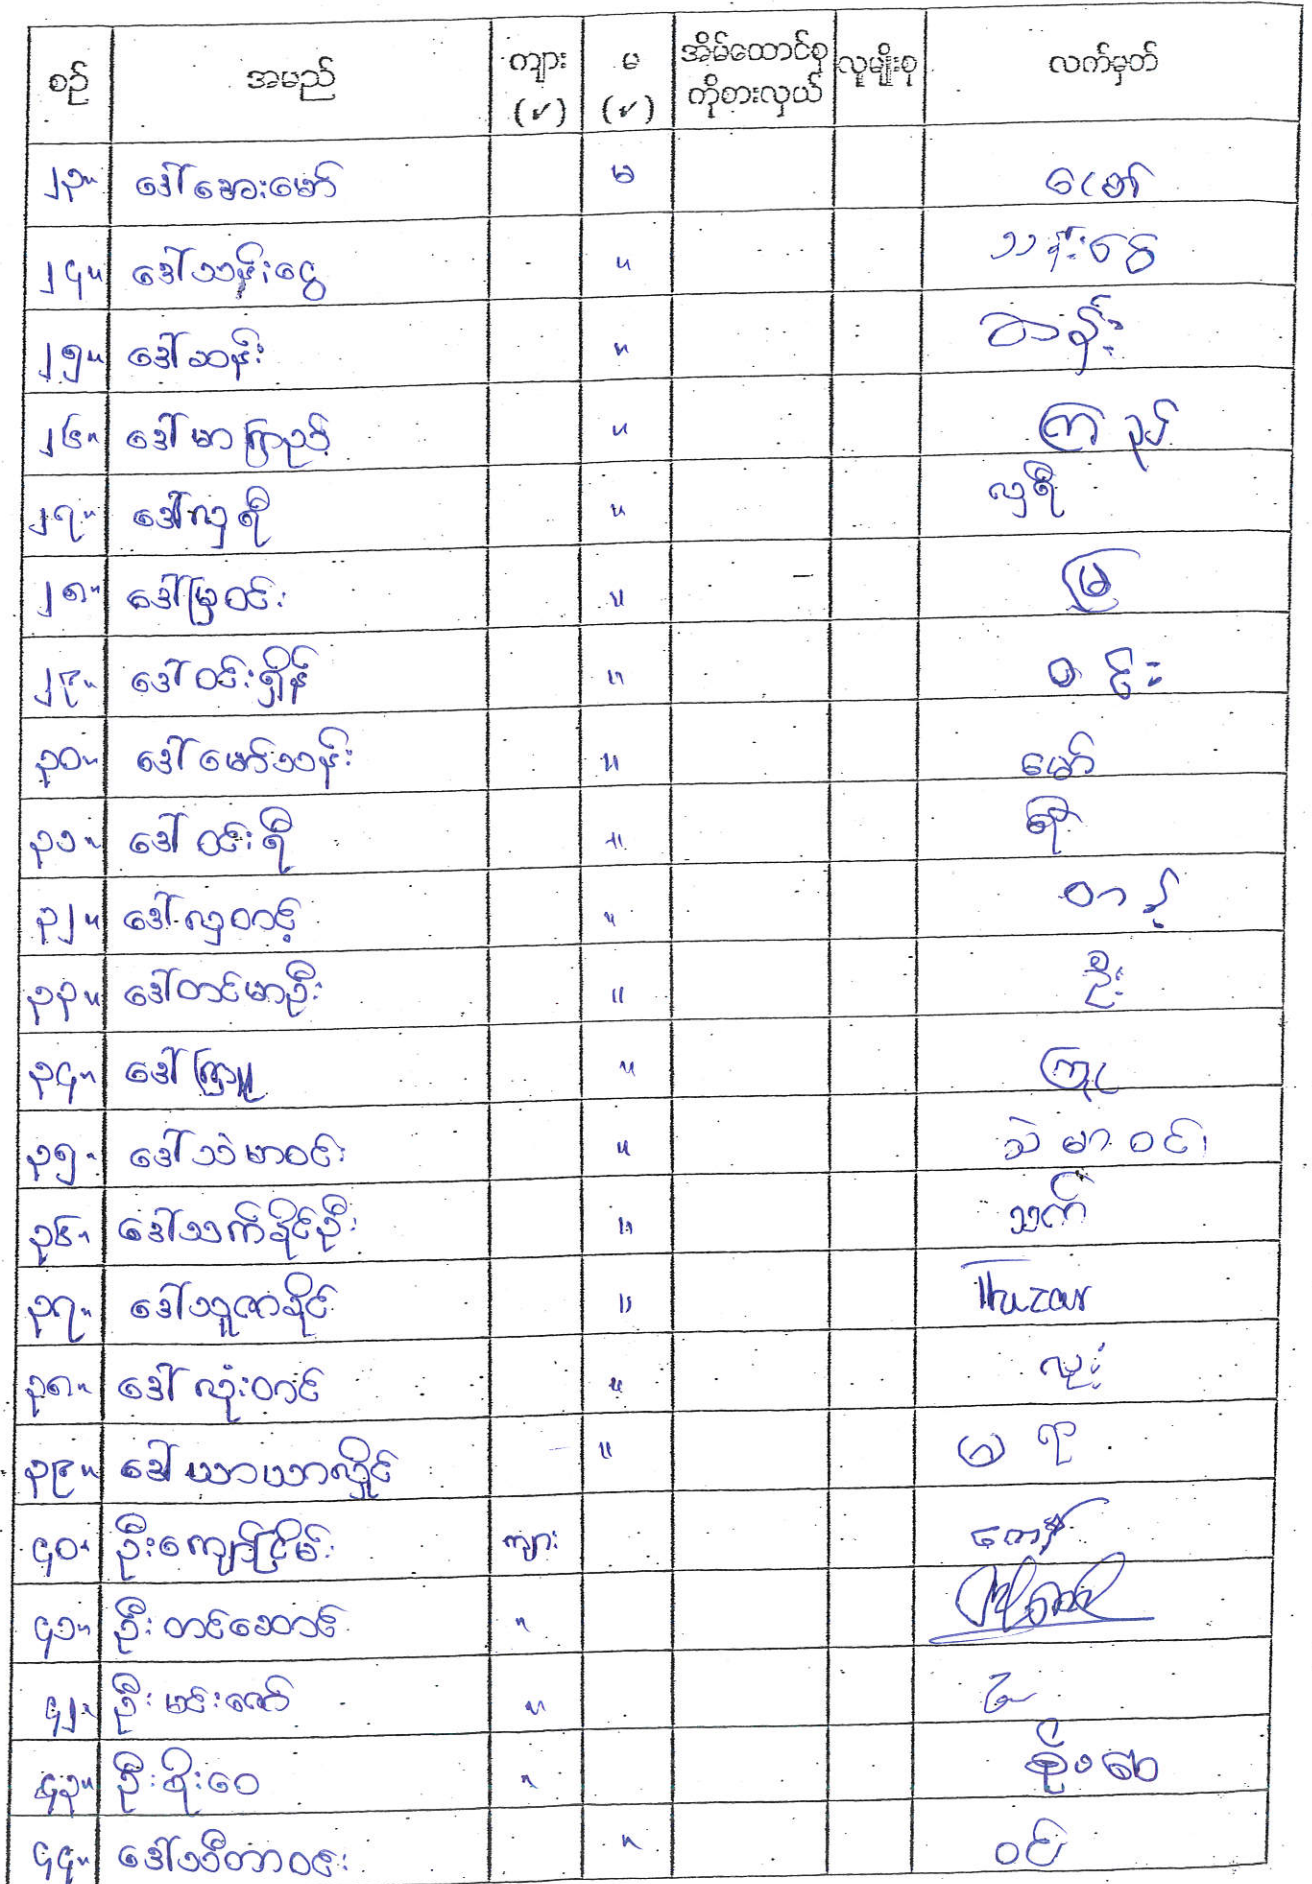 စဉ် အမည် ကျား (✓) မ (✓) အိမ်ထောင်စု ကိုစားလှယ် လူမျိုးစု လက်မှတ်
၂၃။ ဒေါ်အေးမော် မ မော်
၂၄။ ဒေါ်သန်းငွေ ။ သန်းငွေ
၂၅။ ဒေါ်ဆန်း ။ ဆန်း
၂၆။ ဒေါ်မာကြည် ။ ကြည်
၂၇။ ဒေါ်လှရီ ။ လှရီ
၂၈။ ဒေါ်မြဝင်း ။ မြ
၂၉။ ဒေါ်ဝင်းရှိန် ။ ဝင်း
၃၀။ ဒေါ်မော်သန်း ။ မော်
၃၁။ ဒေါ်ဝင်းရီ ။ ရီ
၃၂။ ဒေါ်လှတင့် ။ တင့်
၃၃။ ဒေါ်တင်မာဦး ။ ဦး
၃၄။ ဒေါ်ကြူ ။ ကြူ
၃၅။ ဒေါ်သဲမာဝင်း ။ သဲမာဝင်း
၃၆။ ဒေါ်သက်ခိုင်ဦး ။ သက်
၃၇။ ဒေါ်သူဇာခိုင် ။ Thuzar
၃၈။ ဒေါ်လုံးတင် ။ လုံး
၃၉။ ဒေါ်ယာယာလှိုင် ။
၄၀။ ဦးကျော်ငြိမ်း ကျား ကျော်
၄၁။ ဦးတင်ဆောင် ။
၄၂။ ဦးမင်းဇော် ။
၄၃။ ဦးစိုးဝေ ။ စိုးဝေ
၄၄။ ဒေါ်သီတာဝင်း ။ ဝင်း